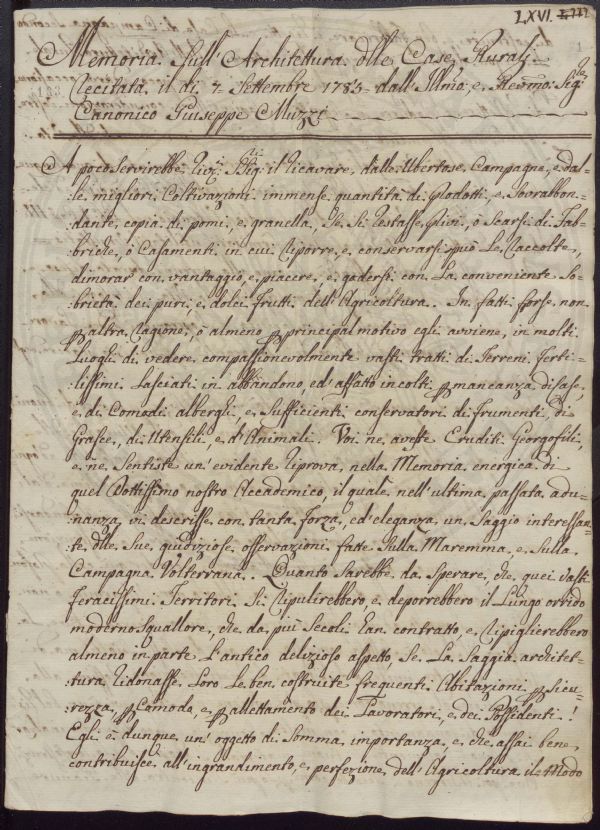 LXVI.
1
Memoria. Sull'Architettura. dlle Case, Rurali
Recitata. il di. 7. Settembre 1785. dall'Illmo. e. Revmo. Sigre
Canonico Giuseppe Muzzi
A poco Servirebbe Sigi: il ricavare, dalle Ubertose Campagne, e. dal=
:le, migliori Coltivazioni immense quantità di Prodotti, e, Sovrabbon=
:dante, copia. di pomi, e, granella, Se, Si restasse, Privi, ò Scarsi di Fab=
:briche, ò Casamenti in cui riporre, e, conservarsi può Le, Raccolte,
dimorar con. vantaggio, e, piacere, e, godersi con. La conveniente So=
:brietà dei puri, e, dolci frutti dell'Agricoltura. In. fatti forse, non
p altra Ragione, ò almeno p principal motivo egli avviene, in molti
Luoghi di vedere, compassionevolmente vasti tratti di Terreni Ferti=
:lissimi Lasciati in abbandono, ed'affatto incolti p mancanza di Case,
e, di Comodi alberghi, e, Sufficienti conservatori di frumenti, di
Grasce, di Utensili, e, d'Animali. Voi ne, aveste Eruditi Georgofili,
e, ne, Sentiste un'evidente riprova, nella Memoria, energica, di
quel Dottissimo nostro Accademico, il quale, nell'ultima. passata, adu=
:nanza, vi descrisse, con tanta. Forza, ed'eleganza, un. Saggio interessan=
:te, dlle, Sue, giudiziose, osservazioni fatte, Sulla. Maremma, e, Sulla.
Campagna. Volterrana. Quanto Sarebbe, da. Sperare, che, quei vasti
Feracissimi Territori Si ripulirebbero, e, deporrebbero il Lungo orrido
moderno Squallore, che, da. più Secoli han. contratto, e, ripiglierebbero
almeno in. parte, L'antico delizioso aspetto, Se, La. Saggia. architet=
:tura, ridonasse, Loro Le, ben. costruite, frequenti Abitazioni p Sicu=
:rezza, p Comodo, e, p allettamento dei Lavoratori, e, dei Possidenti!
Egli è, dunque, un'oggetto di Somma. importanza, e, che, assai bene,
contribuisce, all'ingrandimento, e, perfezione, dell'Agricoltura, il Modo